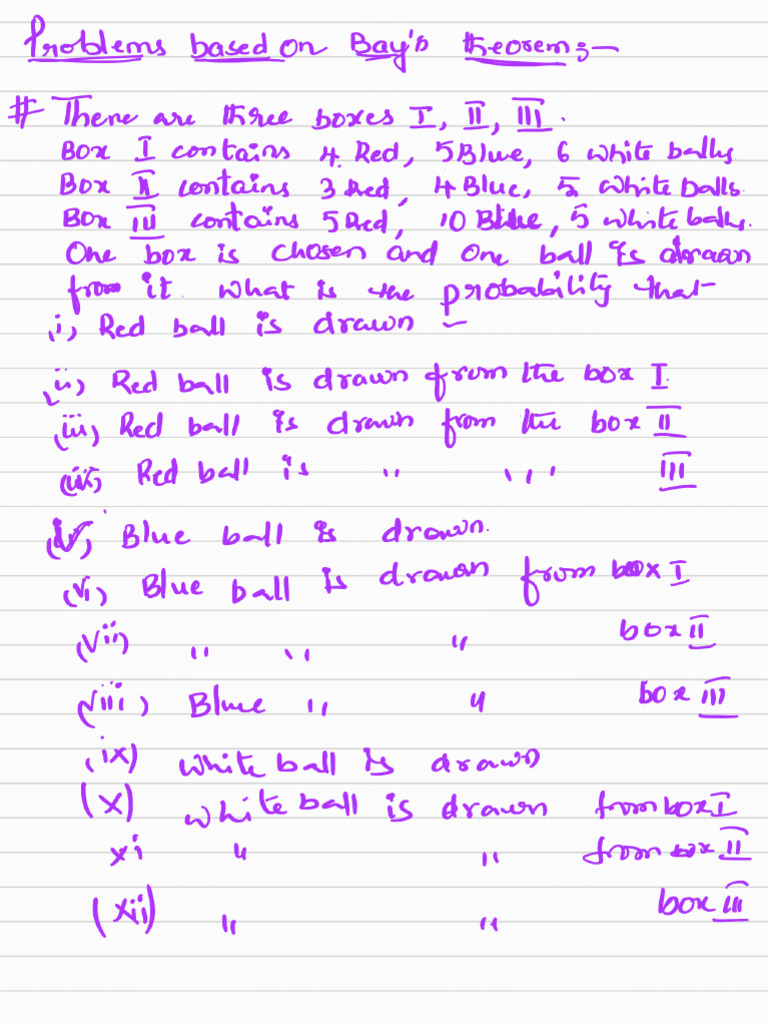 Problems based on Bay's theorem:-
# There are three boxes I, II, III.
Box I contains 4 Red, 5 Blue, 6 white balls
Box II contains 3 Red, 4 Blue, 5 white balls.
Box III contains 5 Red, 10 Blue, 5 white balls.
One box is chosen and one ball is drawn
from it. what is the probability that
(i) Red ball is drawn
(ii) Red ball is drawn from the box I
(iii) Red ball is drawn from the box II
(iv) Red ball is " " ' III
(v) Blue ball is drawn.
(vi) Blue ball is drawn from box I
(vii) " " " box II
(viii) Blue " " box III
(ix) white ball is drawn
(x) white ball is drawn from box I
xi " " from box II
(xii) " " box III